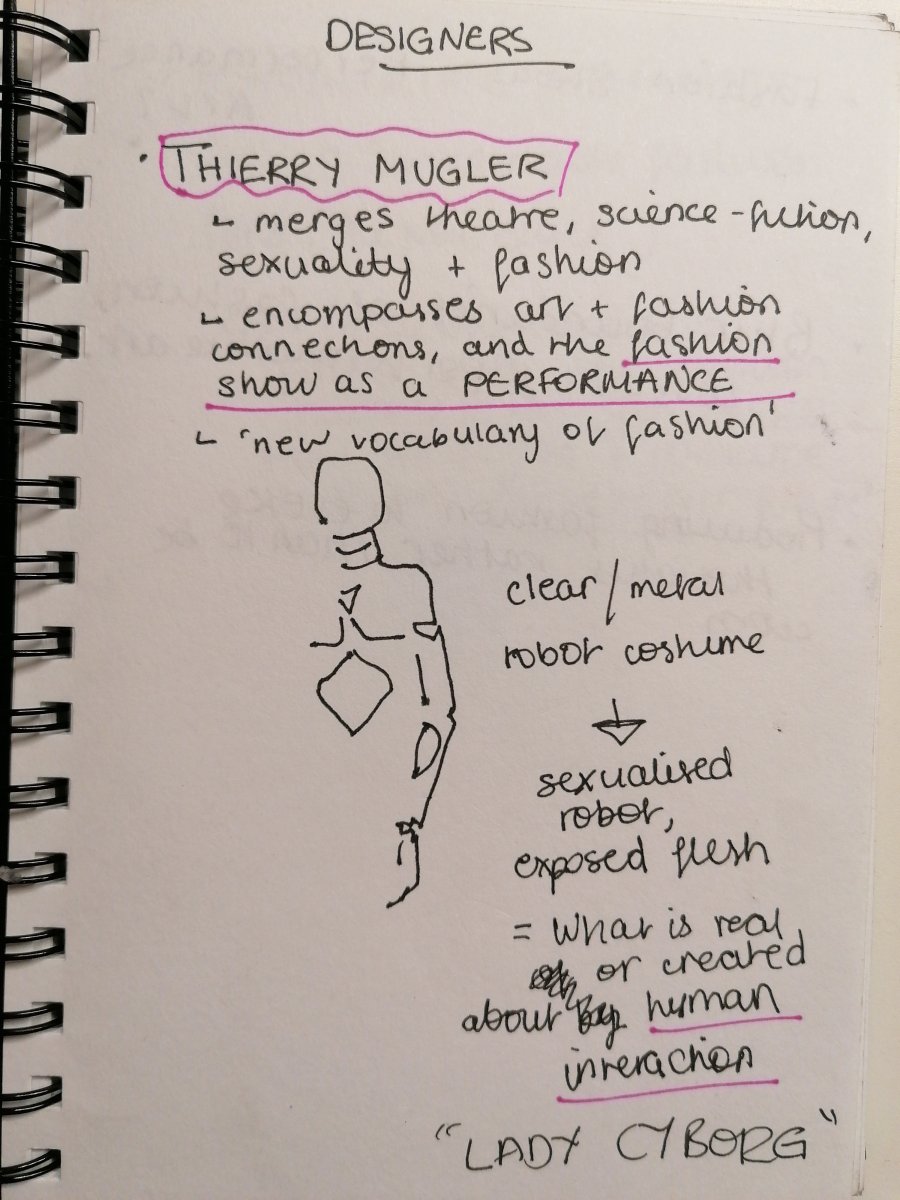 DESIGNERS
· THIERRY MUGLER
↳ merges theatre, science-fiction,
sexuality + fashion
↳ encompasses art + fashion
connections, and the fashion
show as a PERFORMANCE
↳ 'new vocabulary of fashion'
clear/metal
robot costume
↓
sexualised
robot,
exposed flesh
= What is real
or created
about human
interaction
"LADY CYBORG"